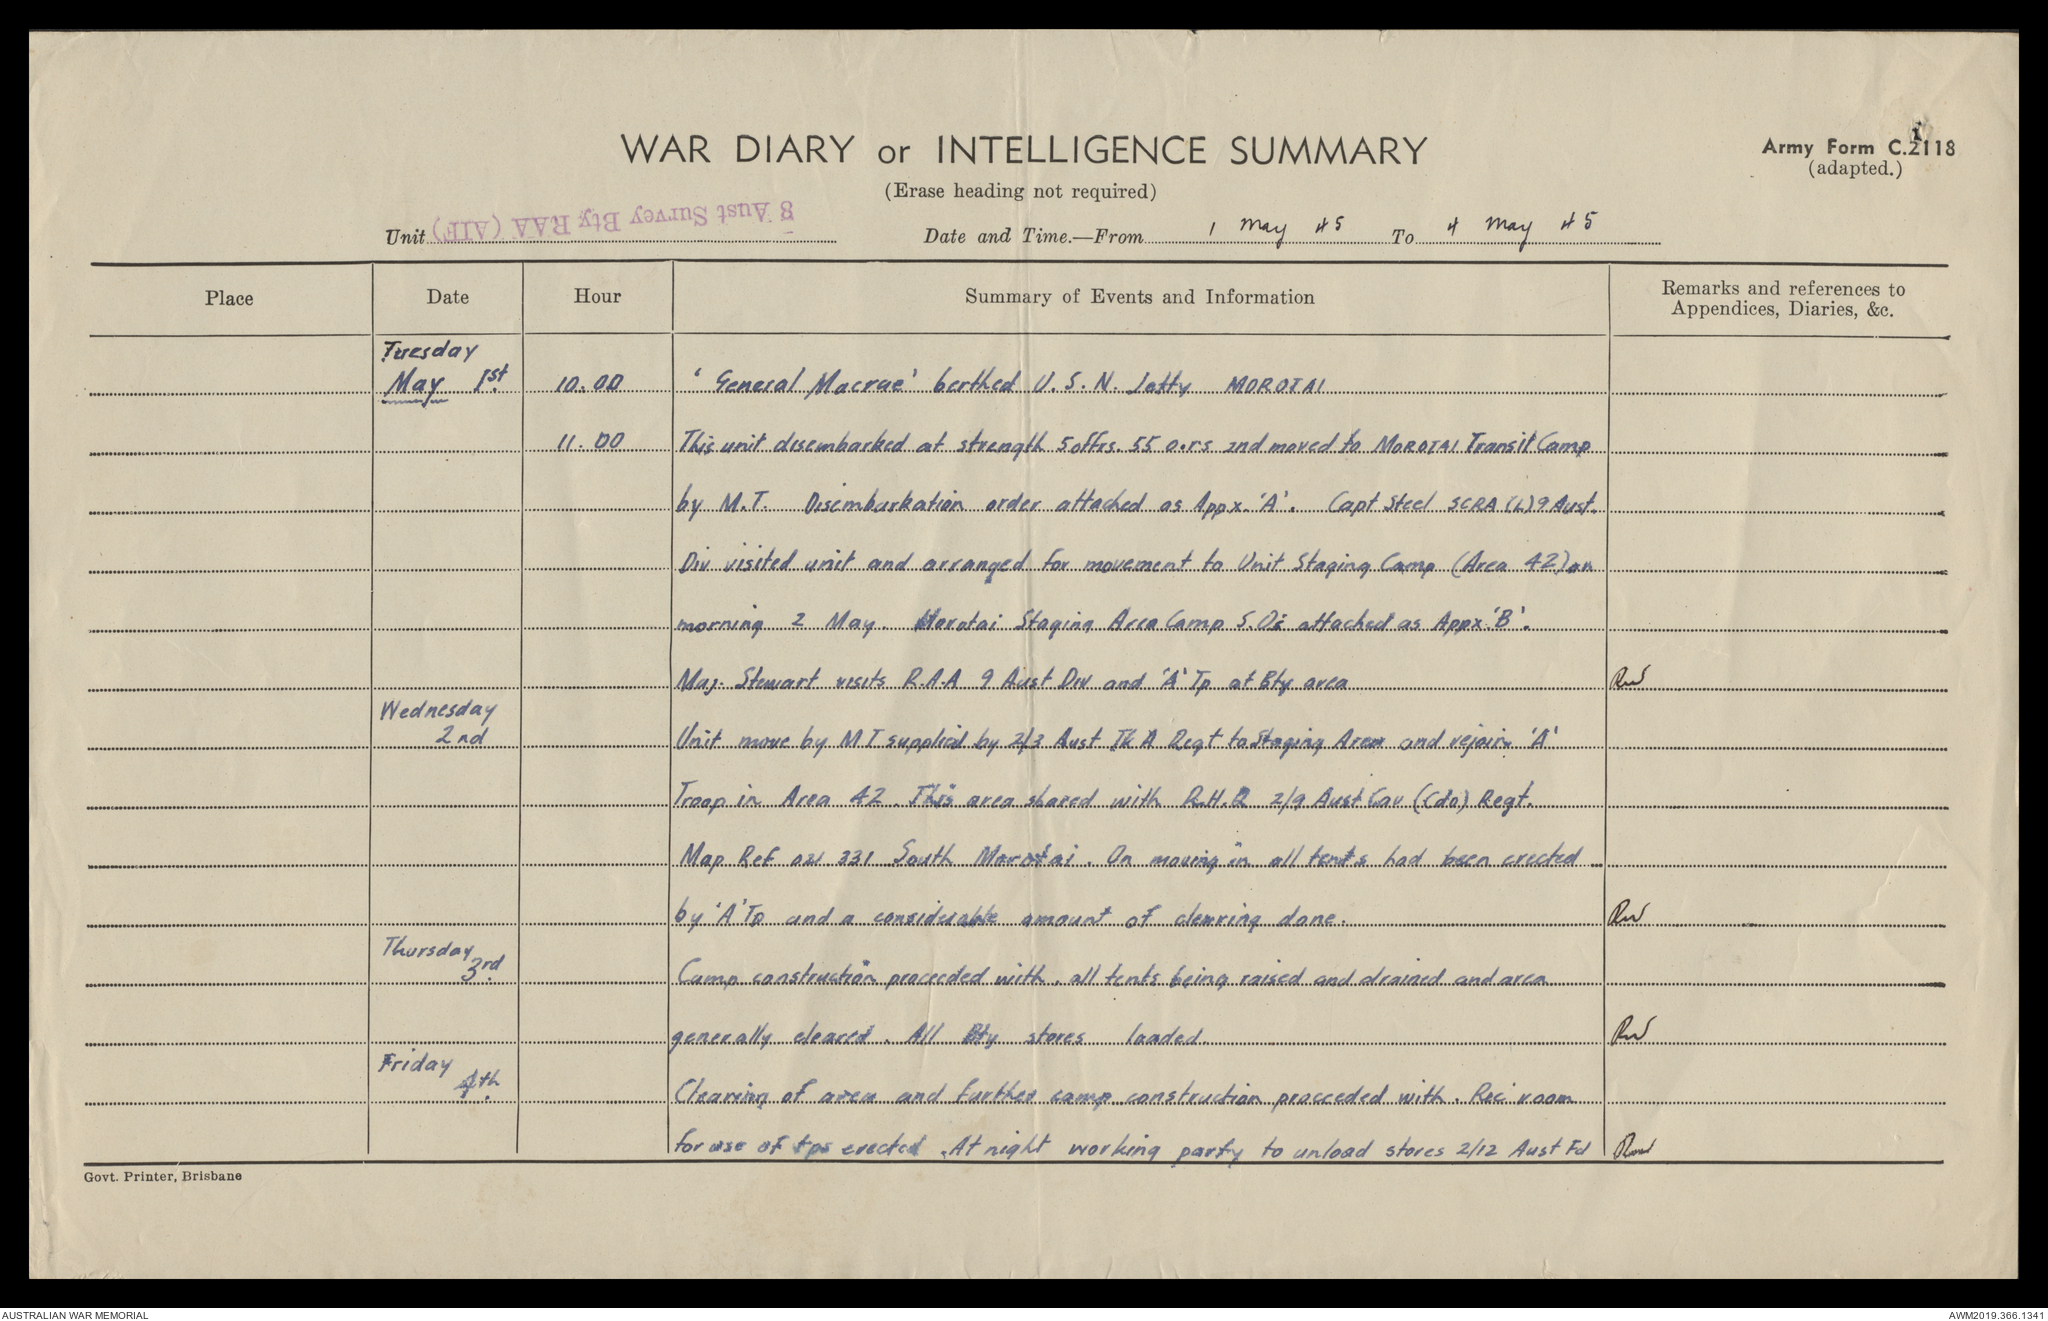 1
WAR DIARY or INTELLIGENCE SUMMARY
Army Form C.2118
(adapted.)
(Erase heading not required)
Unit 8 Aust Survey Bty RAA (AIF)
Date and Time.—From 1 May 45 To 4 May 45
Place Date Hour Summary of Events and Information Remarks and references to
Appendices, Diaries, &c.
Tuesday
May 1st. 10.00 'General Macrae' berthed U.S.N. Jetty MOROTAI
11.00 This unit disembarked at strength 5 offrs. 55 o.rs and moved to MOROTAI Transit Camp
by M.T. Disembarkation order attached as Appx. 'A'. Capt Steel SCRA (L) 9 Aust.
Div visited unit and arranged for movement to Unit Staging Camp (Area 42) on
morning 2 May. Morotai Staging Area Camp S.Os attached as Appx 'B'.
Maj. Stewart visits R.A.A 9 Aust Div and 'A' Tp at Bty area
Wednesday
2nd Unit move by MT supplied by 2/3 Aust Tk A Regt to Staging Area and rejoin 'A'
Troop in Area 42. This area shared with R.H.Q 2/9 Aust Cav (Cdo) Regt.
Map Ref 021 331 South Morotai. On moving in all tents had been erected
by 'A' Tp and a considerable amount of clearing done.
Thursday
3rd. Camp construction proceeded with, all tents being raised and drained and area
generally cleared. All Bty stores loaded.
Friday
4th. Clearing of area and further camp construction proceeded with. Rec room
for use of tps erected. At night working party to unload stores 2/12 Aust Fd
Govt. Printer, Brisbane
AUSTRALIAN WAR MEMORIAL
AWM2019.366.1341